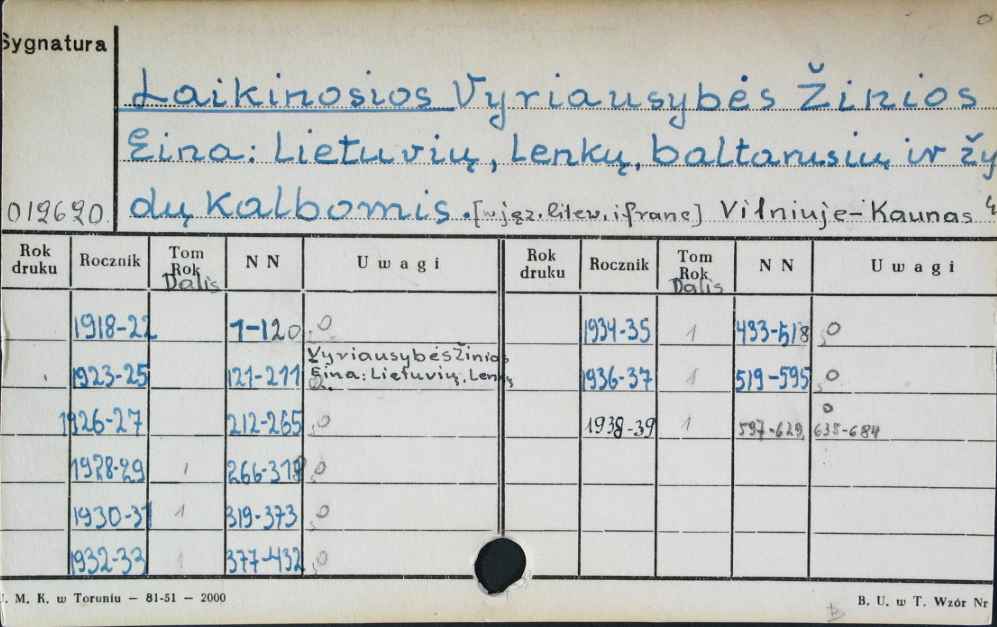 Sygnatura
Laikinosios Vyriausybės Žinios
Eina: Lietuvių, Lenkų, baltarusių ir žy
012620 dų Kalbomis. [w jęz. litew. i franc] Vilniuje-Kaunas 4
Rok druku Rocznik Tom Rok Dalis N N Uwagi Rok druku Rocznik Tom Rok Dalis N N Uwagi
1918-22 1-120 0 1934-35 1 433-518 0
Vyriausybės Žinios
1923-25 121-211 Eina: Lietuvių, Lenkų 1936-37 1 519-595 0
1926-27 212-265 0 1938-39 1 597-629, 635-684 0
1928-29 1 266-318 0
1930-31 1 319-373 0
1932-33 1 377-432 0
U. M. K. w Toruniu — 81-51 — 2000 B. U. w T. Wzór Nr